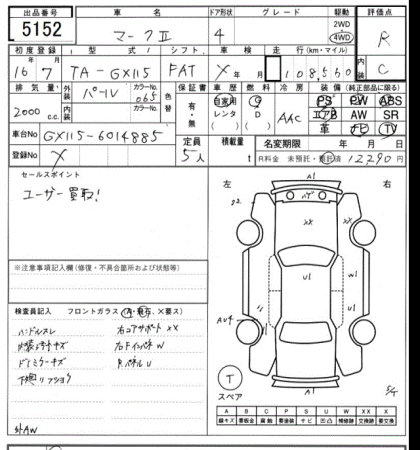 出品番号 車名 ドア形状 グレード 駆動 評価点
5152 マークII 4 2WD 4WD R
初度登録 型式 シフト 車検 走行(km・マイル) 内装
16年7月 TA-GX115 FAT X年月 108,560 C
排気量 外装色 カラーNo. 色替 保証書 車歴 燃料 冷房 装備(純正部品に限る)
2000c.c. パール 065 有・無 自家用 レンタ G D AAC PS PW ABS
内装 カラーNo. エアB AW SR
革 ナビ TV
車台No GX115-6014885 定員 積載量 名変期限 年月日
登録No X 5人 t R料金 未預託・預託済 12,290円
セールスポイント
ユーザー買取!
左 右
A1
バゲ
XX XX
U1 U1 W
U1
A1
スペア
※注意事項記入欄(修復・不具合箇所および状態等)
検査員記入 フロントガラス(A・飛石、X要ス)
ハンドルスレ 右コアサポートXX
内装キズ 右FインパネW
ドアミラーキズ RパネルU
下廻り
外AW
A B C P S U W X XX
線キズ 要板金 腐蝕 要塗装 サビ 凹凸 補修跡 要交換 交換済